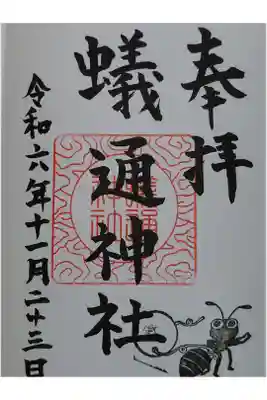 奉拝
蟻通神社
令和六年十一月二十三日